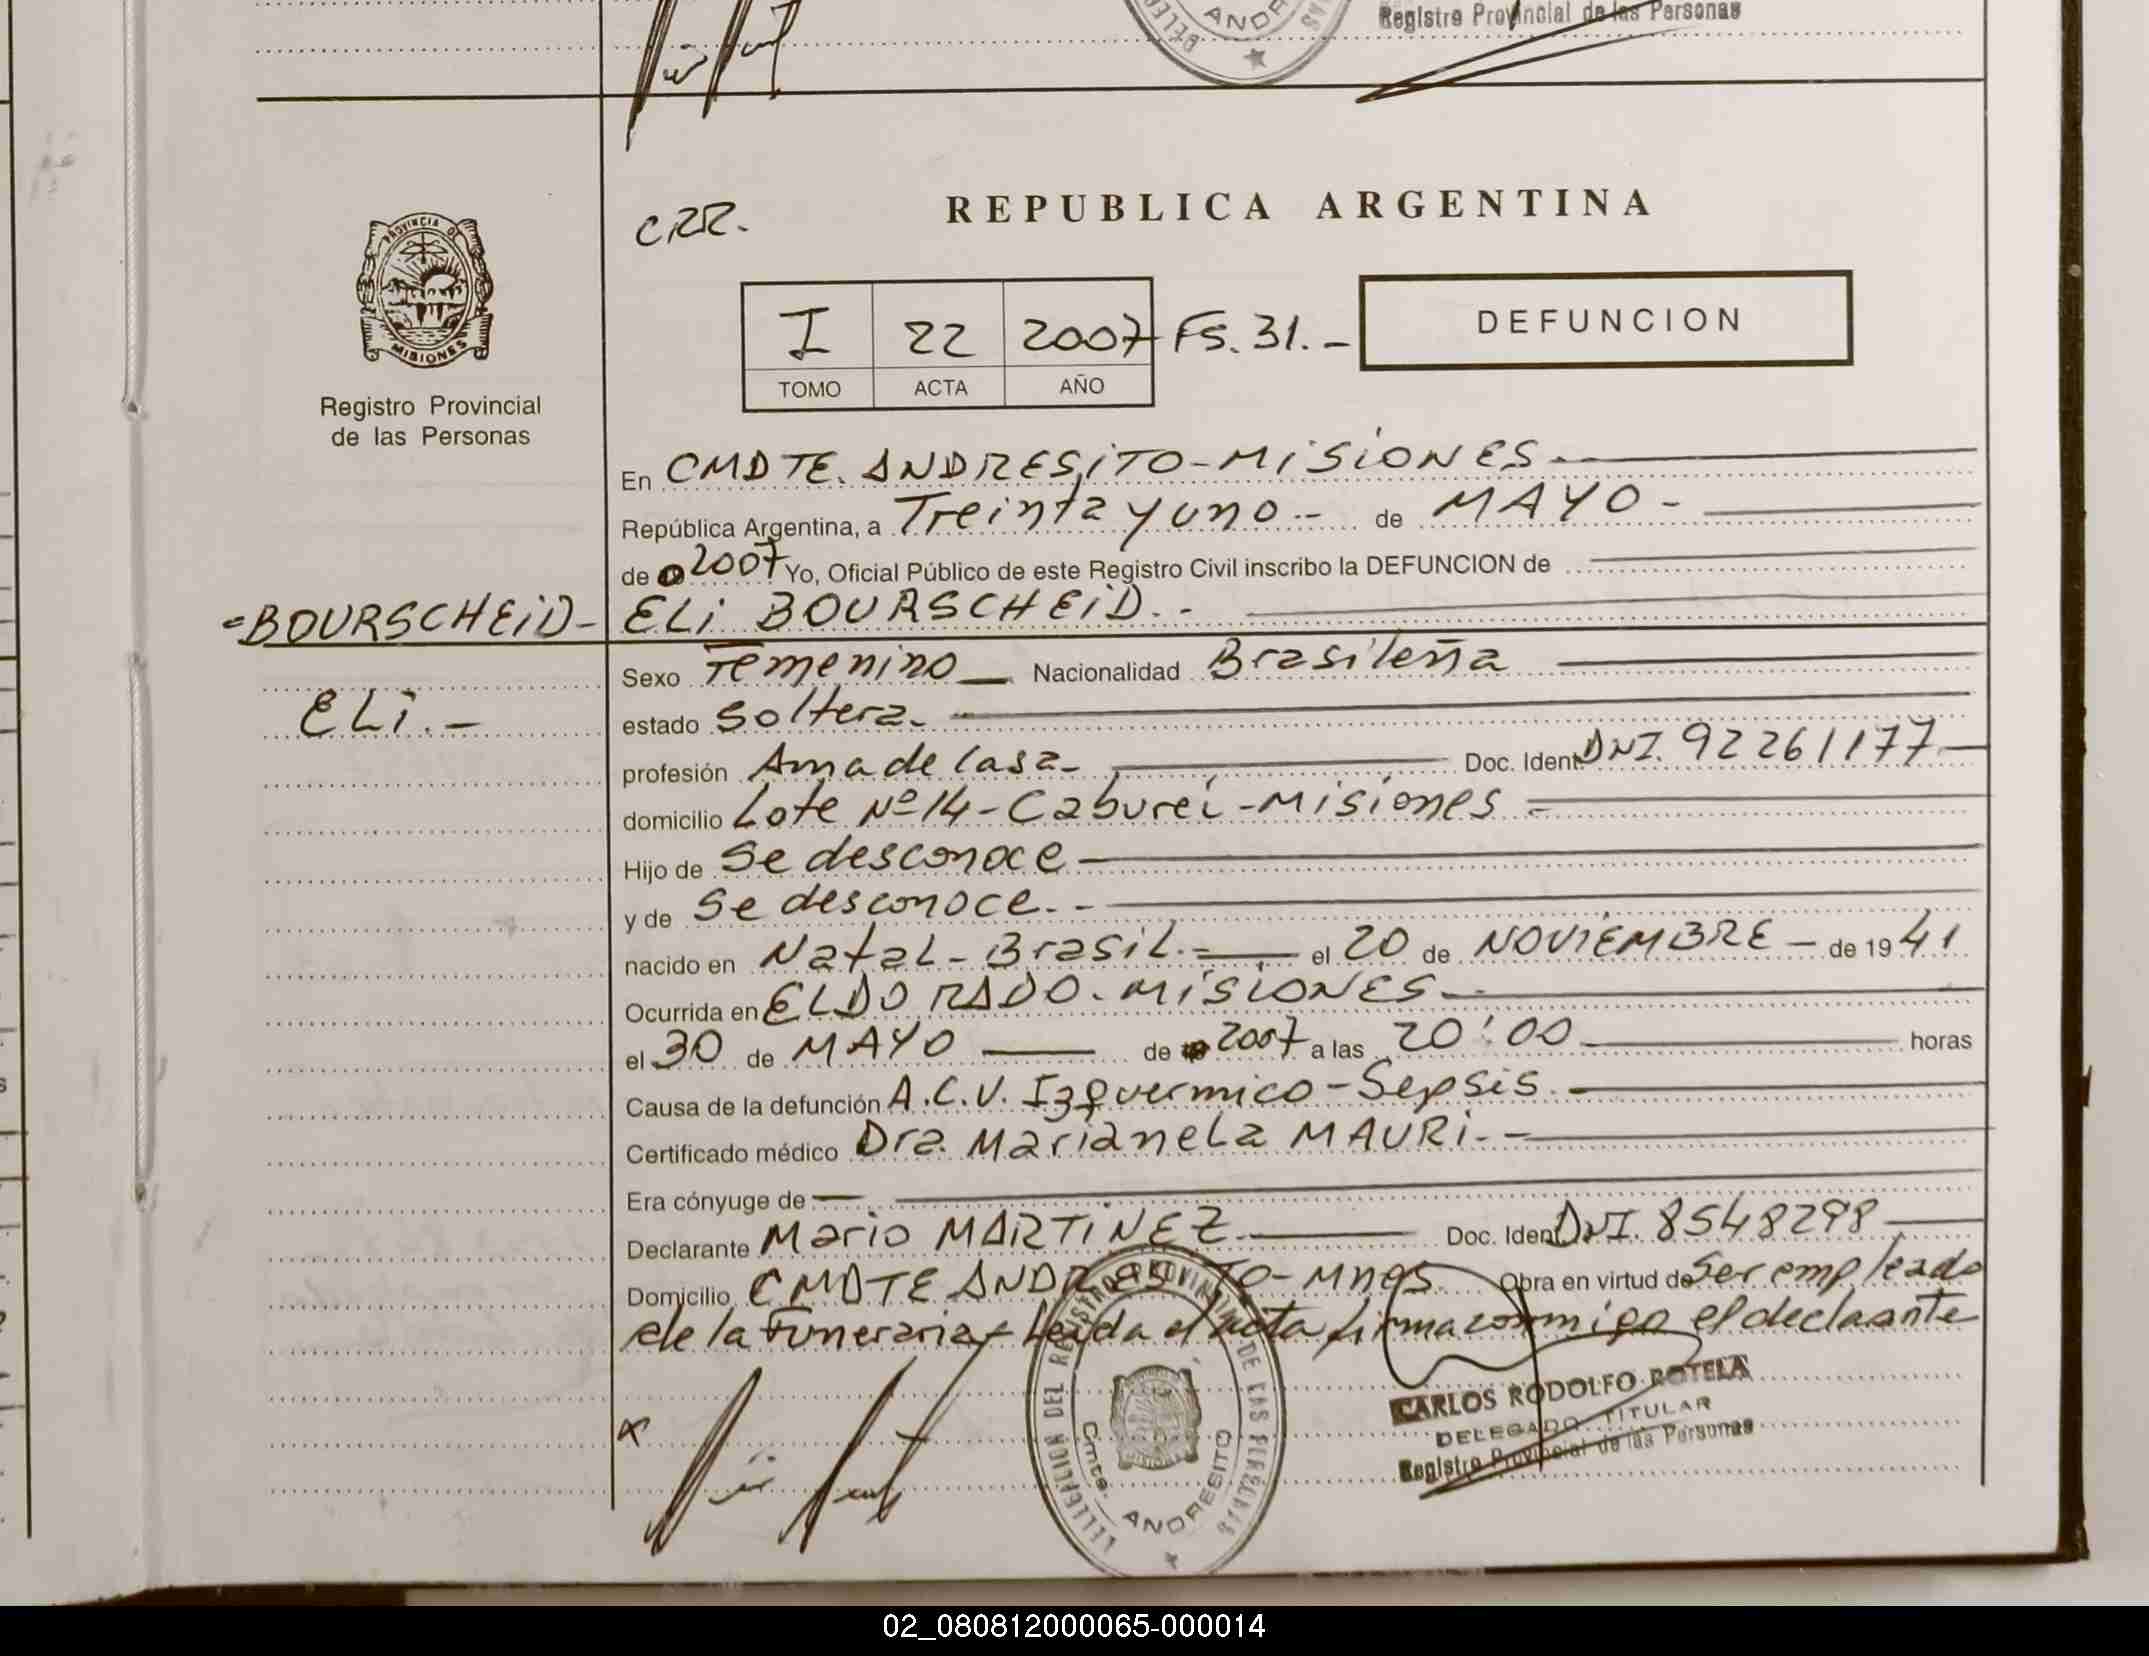 Registro Provincial de las Personas
PROVINCIA DE
MISIONES
Registro Provincial
de las Personas
C.R.R.
REPUBLICA ARGENTINA
I 22 2007 Fs. 31.-
TOMO ACTA AÑO
DEFUNCION
En CMDTE. ANDRESiTO-MiSiONES
República Argentina, a Treinta y uno.- de MAYO-
de 2007 Yo, Oficial Público de este Registro Civil inscribo la DEFUNCION de
=BOURSCHEiD- ELi BOURSCHEiD.-
ELi.-
Sexo Femenino Nacionalidad Brasileña
estado Soltera.
profesión Ama de Casa- Doc. Ident. DNI. 92261177
domicilio Lote Nº 14-Cabureí-Misiones-
Hijo de Se desconoce
y de Se desconoce.-
nacido en Natal-Brasil.- el 20 de NOViEMBRE- de 1941
Ocurrida en ELDORADO-MiSiONES
el 30 de MAYO de 2007 a las 20:00 horas
Causa de la defunción A.C.V. Izquermico-Sepsis.-
Certificado médico Dra. Marianela MAURi.-
Era cónyuge de —
Declarante Mario MARTiNEZ Doc. Ident. DNI. 8548298
Domicilio CMDTE ANDRESiTO-Mnes Obra en virtud de Ser empleado
de la Funeraria- Leida el acta firma conmigo el declaante
x
DELEGACION DEL REGISTRO PROVINCIAL DE LAS PERSONAS
Cmte. ANDRESITO
CARLOS RODOLFO ROTELA
DELEGADO TITULAR
Registro Provincial de las Personas
02_080812000065-000014